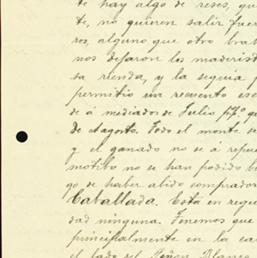 te hay algo de reses, que
te, no quieren salir fuer
ros, alguno que otro
nos dejaron los maderist
sa rienda, y la seguía
permitió un recuento
de á mediados de Julio ppº
de Agosto. Todo el monte se
y el ganado no se á repue
motibo no se han podido
go se haber abido comprador
Caballada. Está en regu
dad ninguna. Tenemos que
principialmente en la ca
el lado del Peñon Blanco